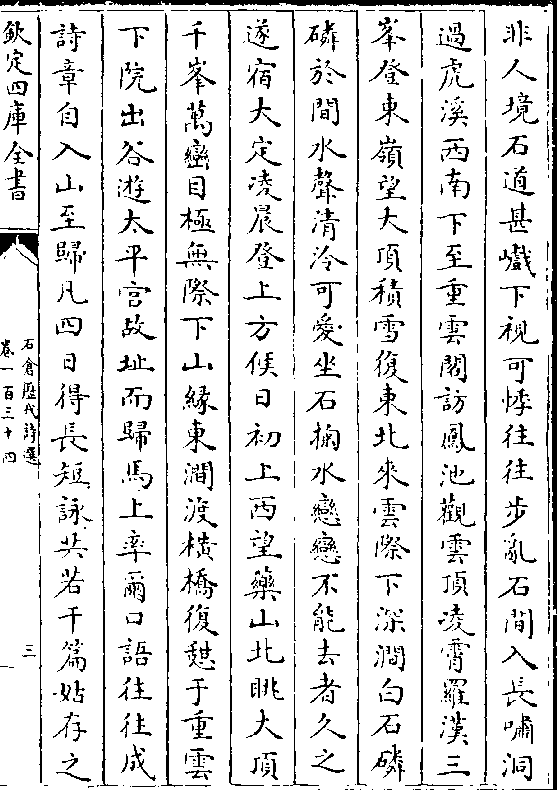 非人境石道甚巇下視可悸往往步亂石間入長嘯洞
過虎溪西南下至重雲閣訪鳳池觀雲頂凌霄羅漢三
峯登東嶺望大頂積雪復東北來雲際下深澗白石磷
磷於間水聲清泠可愛坐石掬水戀戀不能去者久之
遂宿大定凌晨登上方候日初上西望藥山北眺大頂
千峯萬巒目極無際下山緣東澗渡横橋復憇于重雲
下院出谷遊太平宫故址而歸馬上率爾口語往往成
詩章自入山至歸凡四日得長短詠共若干篇姑存之
欽定四庫全書
石倉歷代詩選
卷一百三十四
三